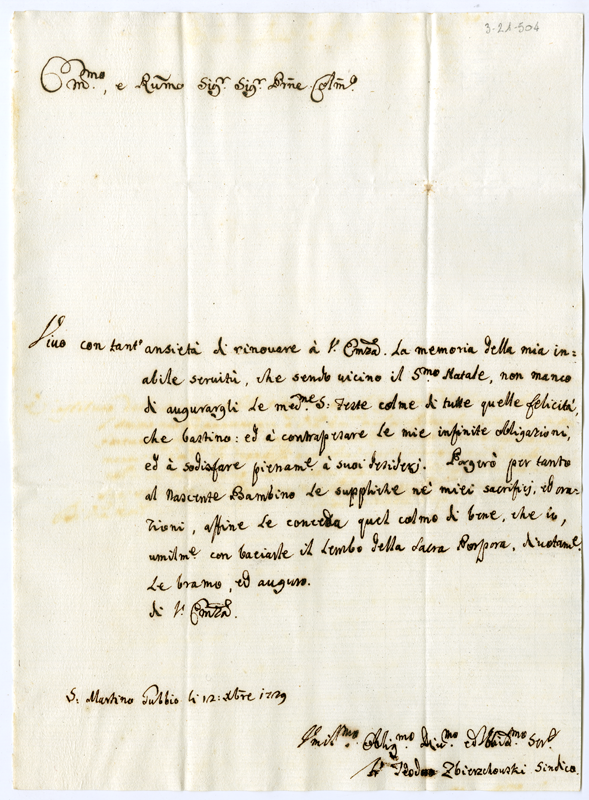 3-21-504
Em.mo, e Rmo Sig.r Sig.r Pne Colmo
Vivo con tant' ansietà di rinovare à V. Emza. La memoria della mia in=
abile servitù, che sendo vicino il S.mo Natale, non manco
di augurargli le med.me S: feste colme di tutte quelle felicità,
che bastino: ed à contrapesare le mie infinite obligazioni,
ed à sodisfare pienam.e à suoi desiderj. Pagerò per tanto
al Nascente Bambino le suppliche ne' miei sacrifizj, ed ora-
zioni, affine le conceda quel colmo di bene, che io,
umilm.e con baciarle il Lembo della Sacra Porpora, divotam.e
Le bramo, ed auguro.
di V. Emza.
S: Martino Gubbio li 12: Xbre 1729
Vmil.mo Oblig.mo Div.mo ed Obbid.mo Ser.e
Fr Teodoro Zbierzchouski Sindico.